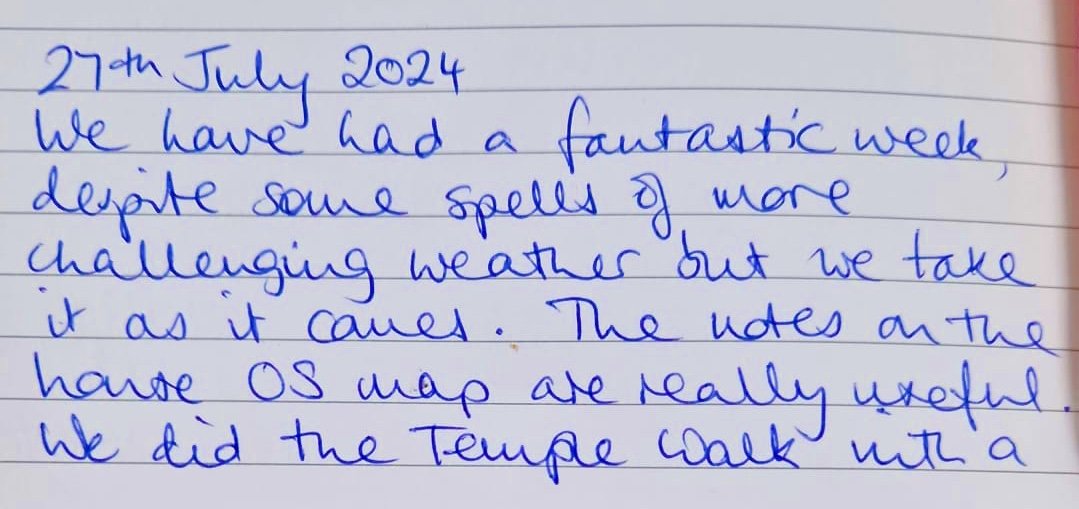 27th July 2024
We have had a fantastic week,
despite some spells of more
challenging weather but we take
it as it comes. The notes on the
house OS map are really useful.
We did the Temple Walk with a